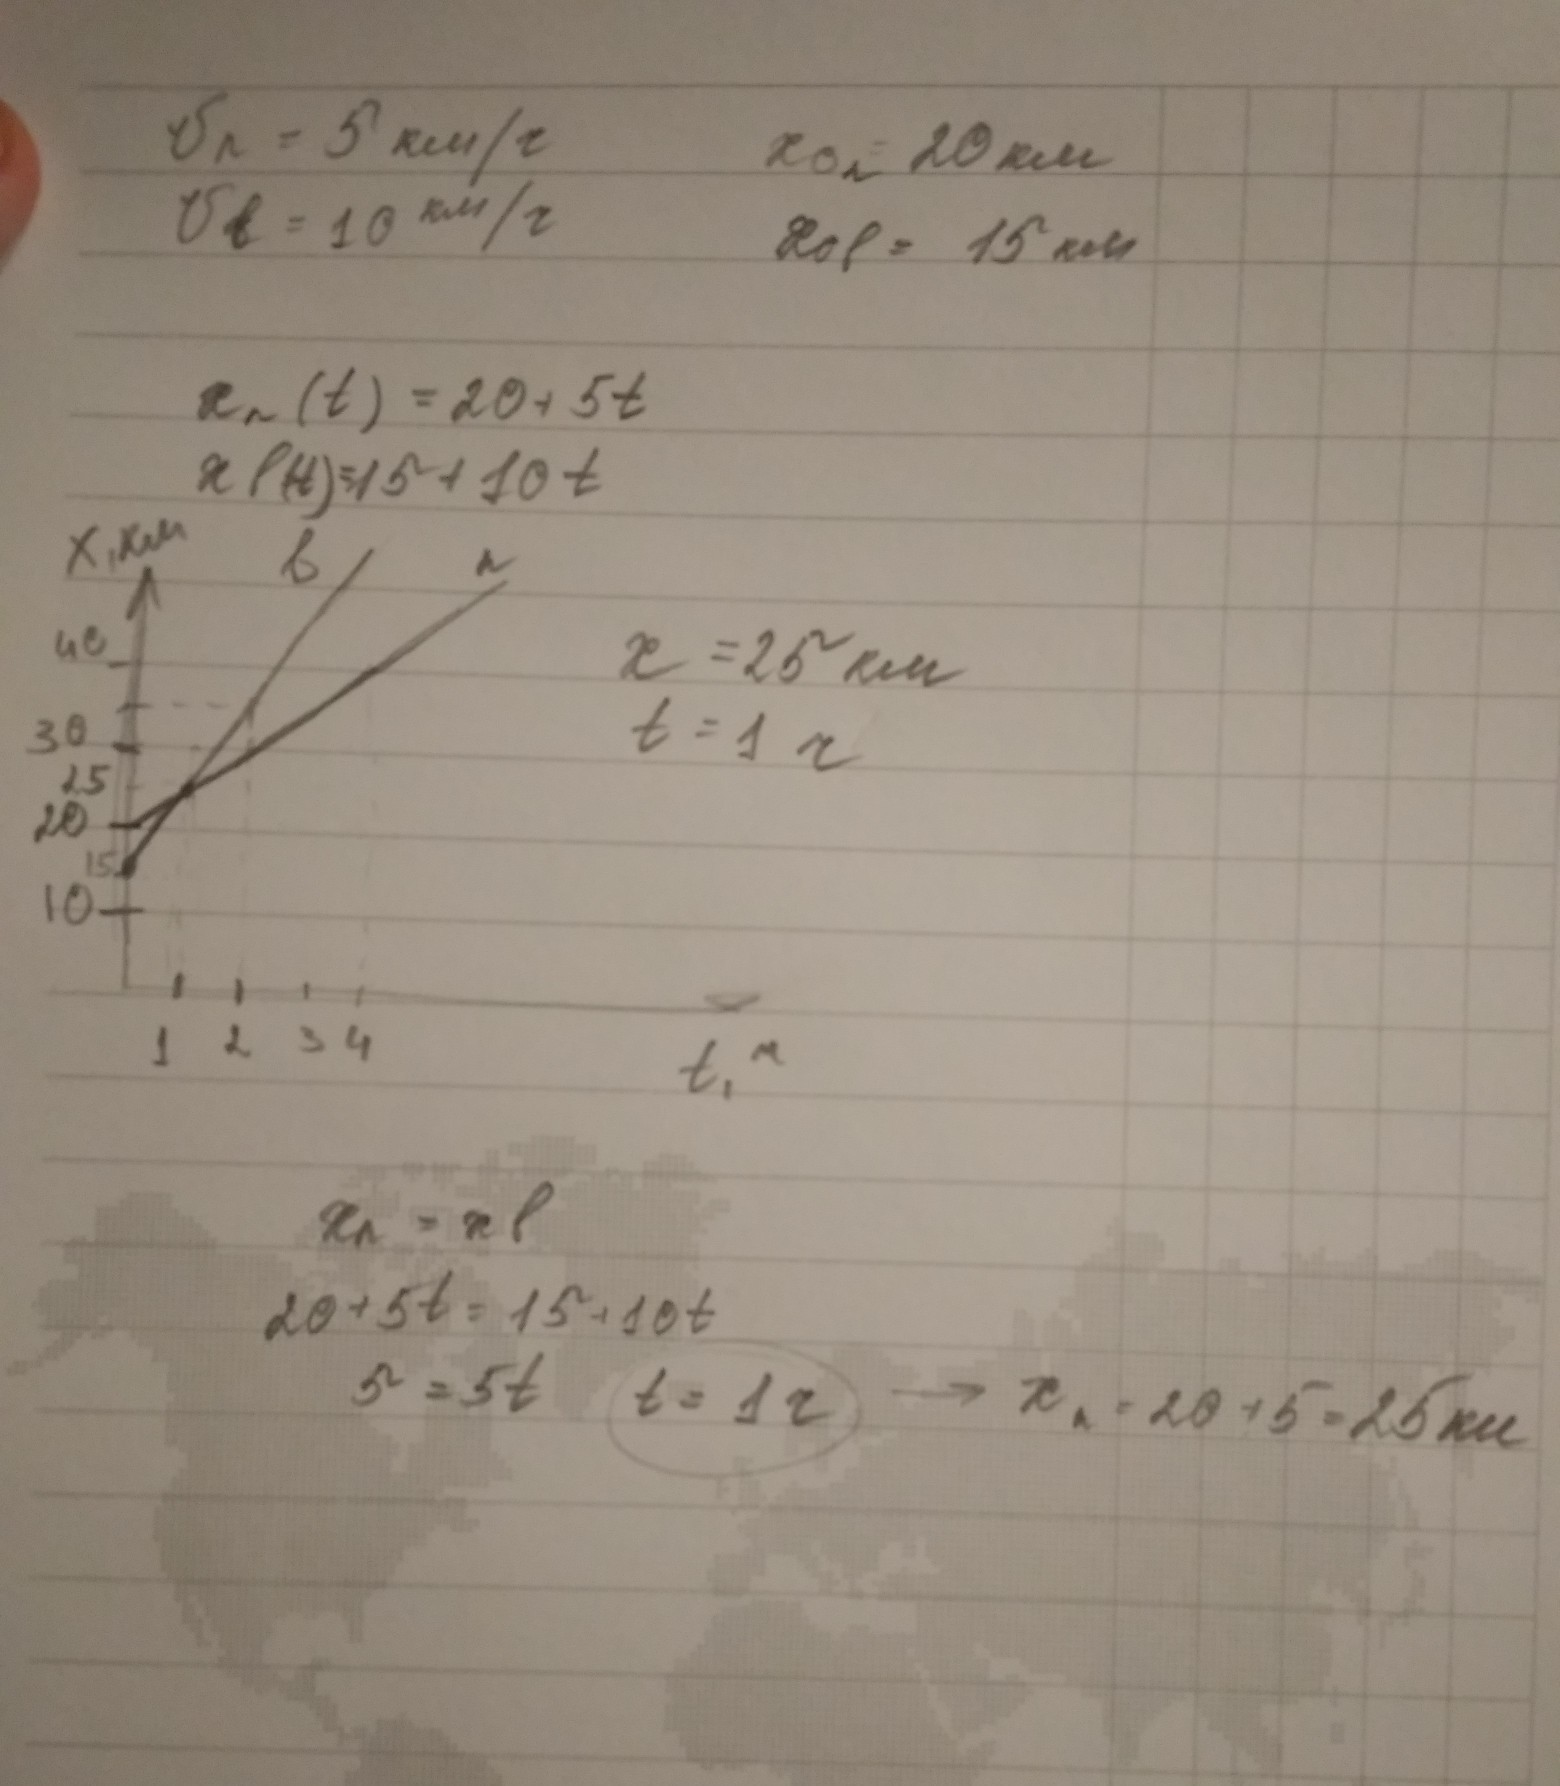 vл = 5 км/ч
x₀л = 20 км
vв = 10 км/ч
x₀в = 15 км
xл (t) = 20 + 5t
xв(t) = 15 + 10t
x, км
в
л
40
30
25
20
15
10
1 2 3 4
t, ч
x = 25 км
t = 1 ч
xл = xв
20 + 5t = 15 + 10t
5 = 5t t = 1 ч → xл = 20 + 5 = 25 км